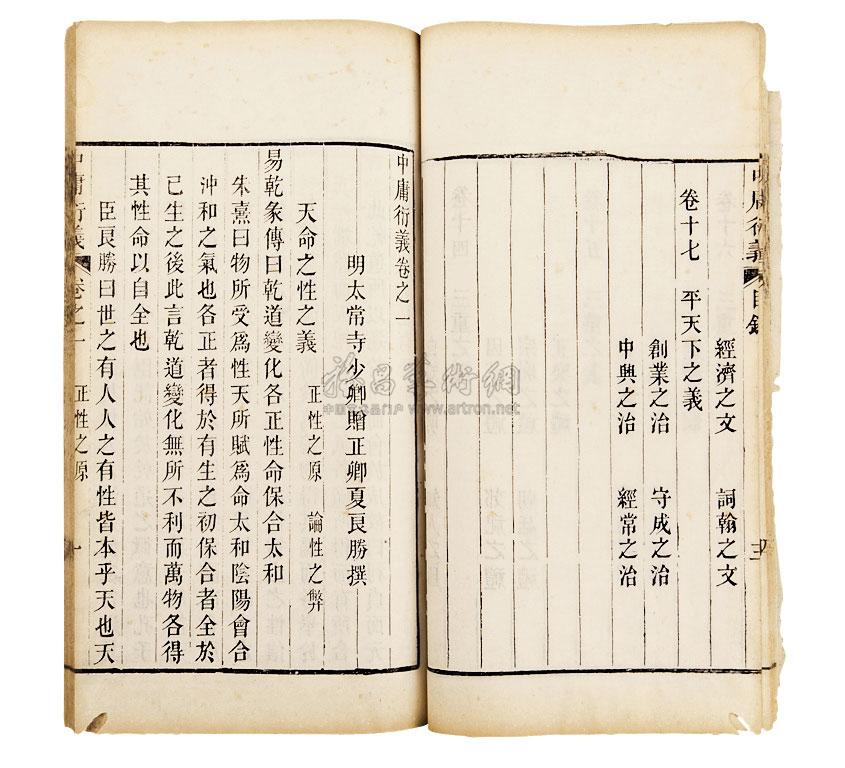 中庸衍義 目錄
經濟之文 詞翰之文
卷十七 平天下之義
創業之治 守成之治
中興之治 經常之治
中庸衍義卷之一
明太常寺少卿贈正卿夏良勝撰
天命之性之義 正性之原 論性之弊
易乾彖傳曰乾道變化各正性命保合太和
朱熹曰物所受為性天所賦為命太和陰陽會合
沖和之氣也各正者得於有生之初保合者全於
已生之後此言乾道變化無所不利而萬物各得
其性命以自全也
臣良勝曰世之有人人之有性皆本乎天也天
中庸衍義 卷之一 正性之原 一
www.artron.net